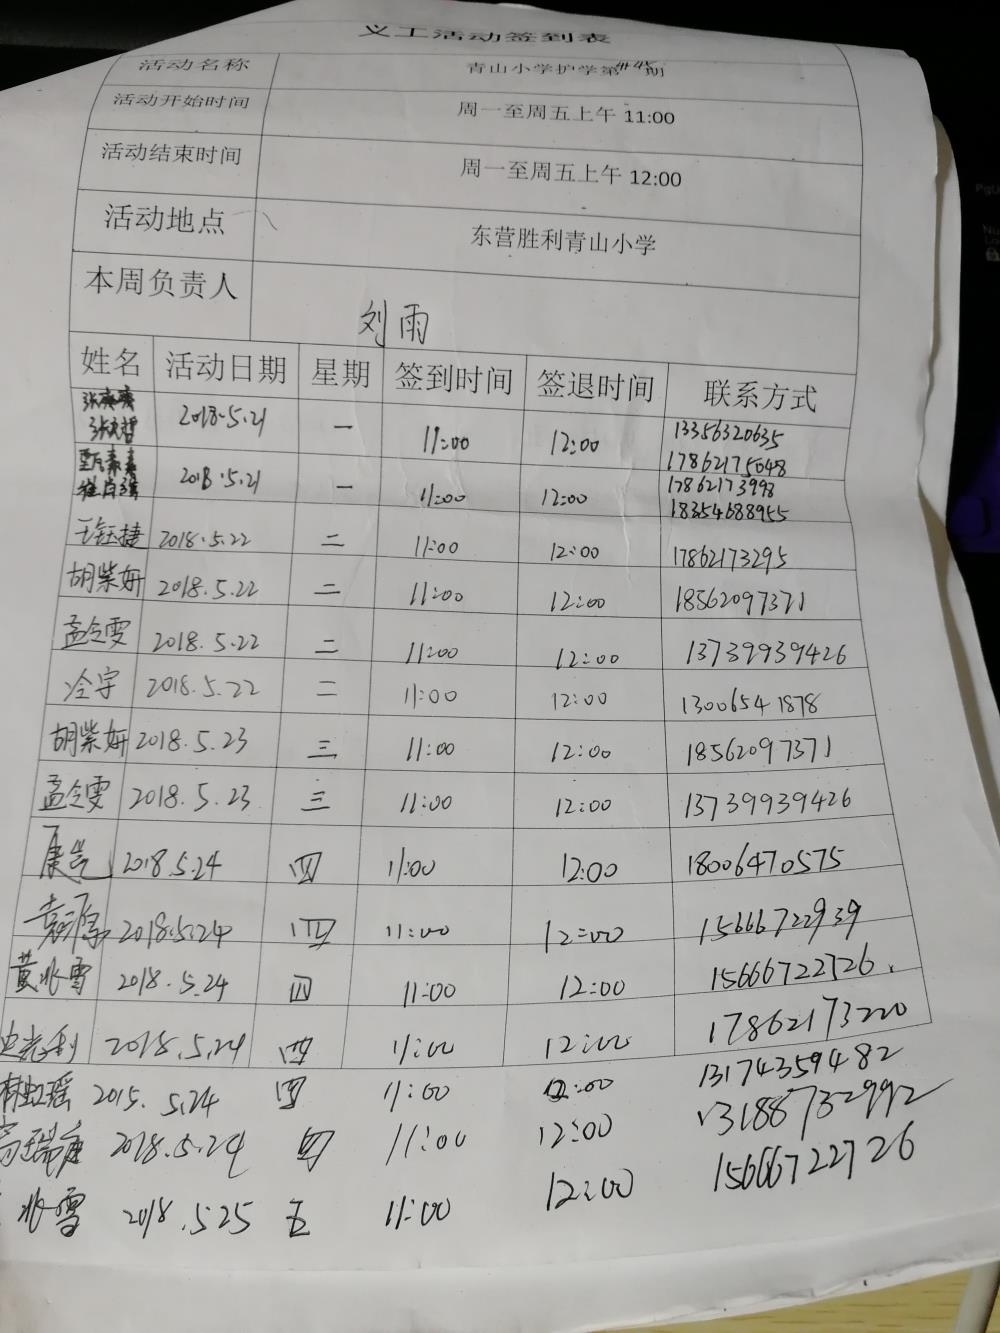 义工活动签到表
活动名称 青山小学护学第 期
活动开始时间 周一至周五上午 11:00
活动结束时间 周一至周五上午 12:00
活动地点 东营胜利青山小学
本周负责人 刘雨
姓名 活动日期 星期 签到时间 签退时间 联系方式
2018.5.21 一 11:00 12:00 13356320635
17862175048
2018.5.21 一 11:00 12:00 17862173998
18354688955
王钰捷 2018.5.22 二 11:00 12:00 17862173295
胡紫妍 2018.5.22 二 11:00 12:00 18562097371
孟令雯 2018.5.22 二 11:00 12:00 13739939426
冷宇 2018.5.22 二 11:00 12:00 13006541878
胡紫妍 2018.5.23 三 11:00 12:00 18562097371
孟令雯 2018.5.23 三 11:00 12:00 13739939426
2018.5.24 四 11:00 12:00 18006470575
2018.5.24 四 11:00 12:00 15666722939
黄兆雪 2018.5.24 四 11:00 12:00 15666722726
2018.5.24 四 11:00 12:00 17862173220
林虹瑶 2015.5.24 四 11:00 12:00 13174359482
2018.5.24 四 11:00 12:00 13188732992
兆雪 2018.5.25 五 11:00 12:00 15666722726